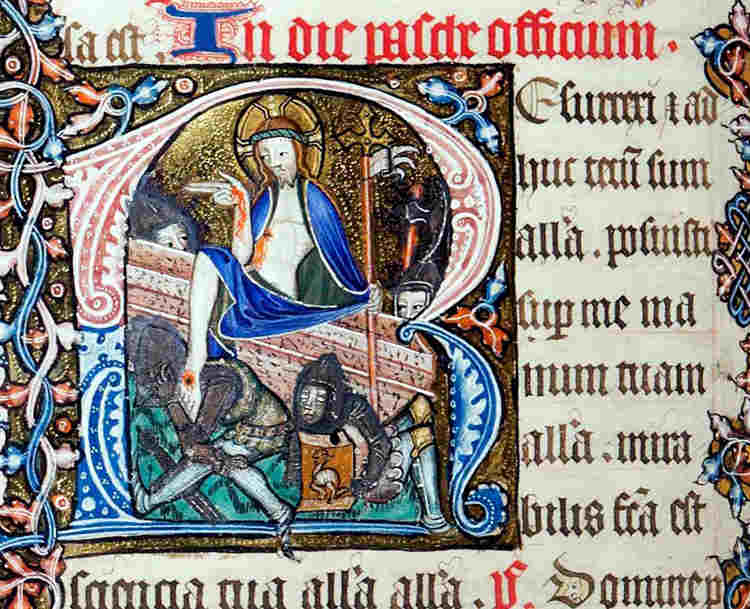 sa est. In die pasche officium.
Resurrexi ⁊ ad
huc tecū sum
all'a. posuisti
sup me ma
num tuam
all'a. mira
bilis fcā est
sciencia tua all'a all'a. Ps. Domine p